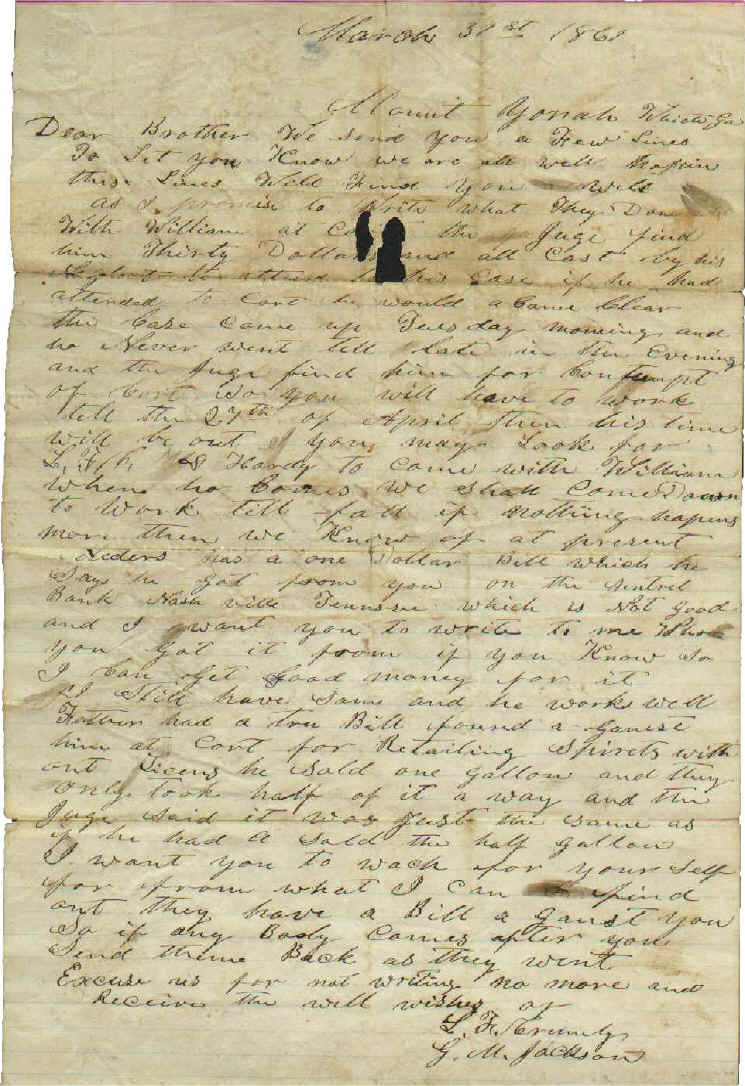 March 31st 1861
Mount Yonah White Ga
Dear Brother We send you a Few Lines
To Let you Know we are all well hopin
this Lines Will Find you well
as I promise to Write what They Don
With William at the Juge find
him Thirty Dollars and all Cast by his
to attend to his Case if he had
attended to Cort he would a Came Clear
the Case Came up Tuesday morning and
he Never went till Late in the Evening
and the Juge find him for Contempt
of Cort So you will have to work
till the 27th of April then his time
will be out you may Look for
L. F. & Hardy to come with William
when he Comes we shall Come Down
to work till fall if nothing hapens
more then we Know of at present
Leders has a one Dollar Bill which he
Says he got from you on the Sentrel
Bank Nash ville Tennssee which is Not good
and I want you to write to me Who
you got it from if you Know So
I Can Get Good money for it
I Still have Sam and he works well
Father had a tru Bill found a ganist
him at Cort for Retailing Spirets with
out Licens he Sold one gallon and they
only took half of it a way and the
Juge Said it was Just the Same as
if he had a Sold the half gallon
I want you to wach for your Self
for from what I can find
out they have a Bill a ganst you
So if any Body Comes after you
Send theme Back as they went
Excuse us for not writing no more and
Receive the well wishes of
L. F.
G. M. Jackson